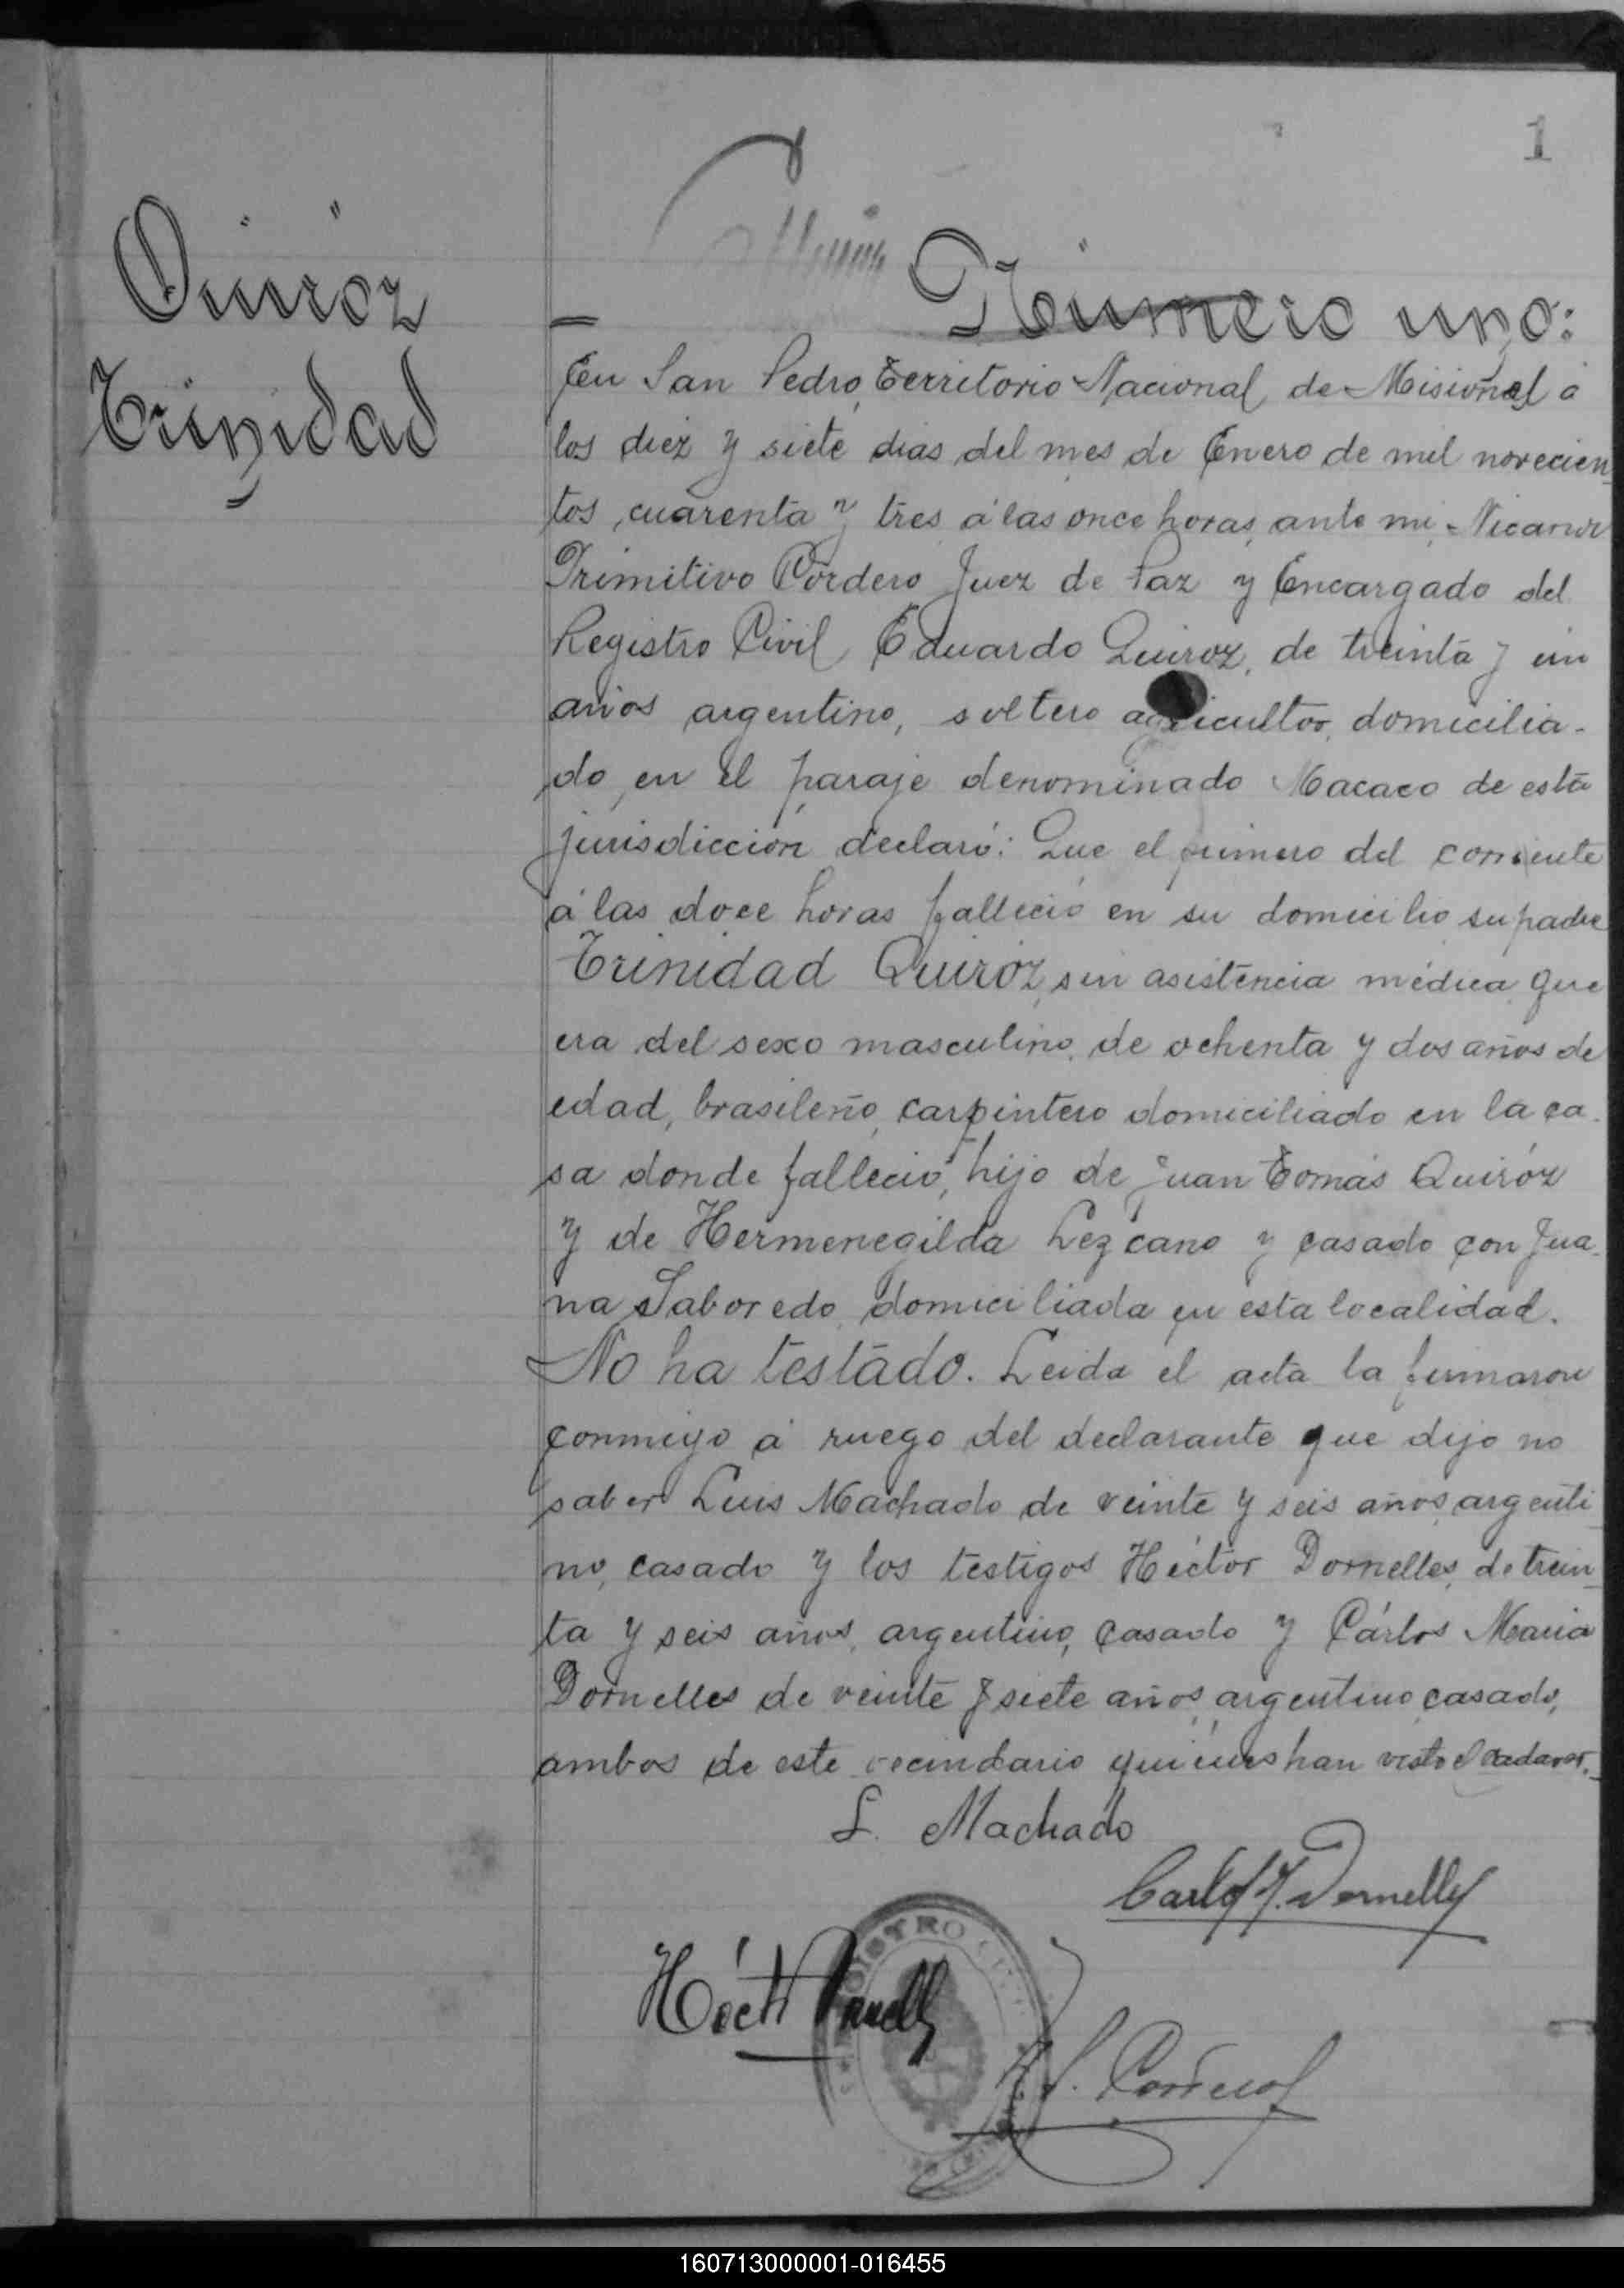 1
Quiróz
Trinidad
Número uno:
En San Pedro, Territorio Nacional de Misiones á
los diez y siete dias del mes de Enero de mil novecien
tos cuarenta y tres á las once horas, ante mi, Nicanor
Primitivo Cordero Juez de Paz y Encargado del
Registro Civil, Eduardo Quiroz, de treinta y un
años argentino, soltero agricultor, domicilia-
do en el paraje denominado Macaco de esta
jurisdicción declaró: Que el primero del corriente
á las doce horas falleció en su domicilio su padre
Trinidad Quiróz, sin asistencia médica, que
era del sexo masculino, de ochenta y dos años de
edad, brasileño, carpintero domiciliado en la ca-
sa donde falleció, hijo de Juan Tomás Quiróz
y de Hermenegilda Lezcano y casado con Jua-
na Saboredo, domiciliada en esta localidad.
No ha testado. Leida el acta la firmaron
conmigo á ruego del declarante que dijo no
saber Luis Machado de veinte y seis años, argenti
no, casado y los testigos Héctor Dornelles, de trein
ta y seis años, argentino, casado y Cárlos Maria
Dornelles de veinte y siete años, argentino, casado,
ambos de este vecindario quiénes han visto el cadaver.
L. Machado
Carlos M. Dornelles
Héctor Dornelles
REGISTRO
N. P. Cordero
160713000001-016455